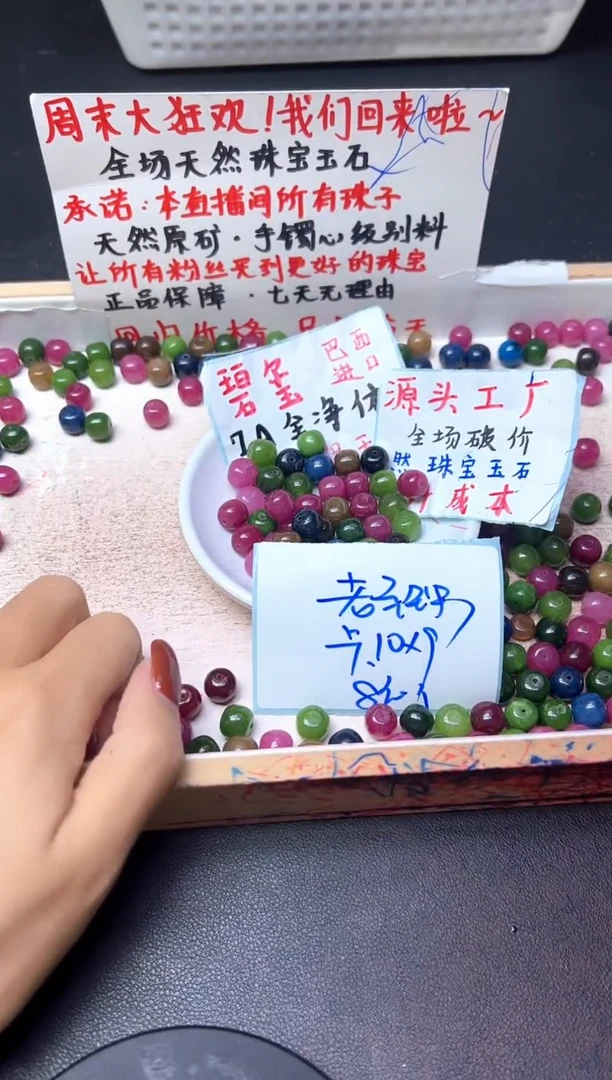 周末大狂欢!我们回来啦~
全场天然珠宝玉石
承诺:本直播间所有珠子
天然原矿·手镯心级别料
让所有粉丝买到更好的珠宝
正品保障·七天无理由
碧玺
巴西
进口
全净体
源头工厂
全场破价
然 珠宝玉石
成本
10x9